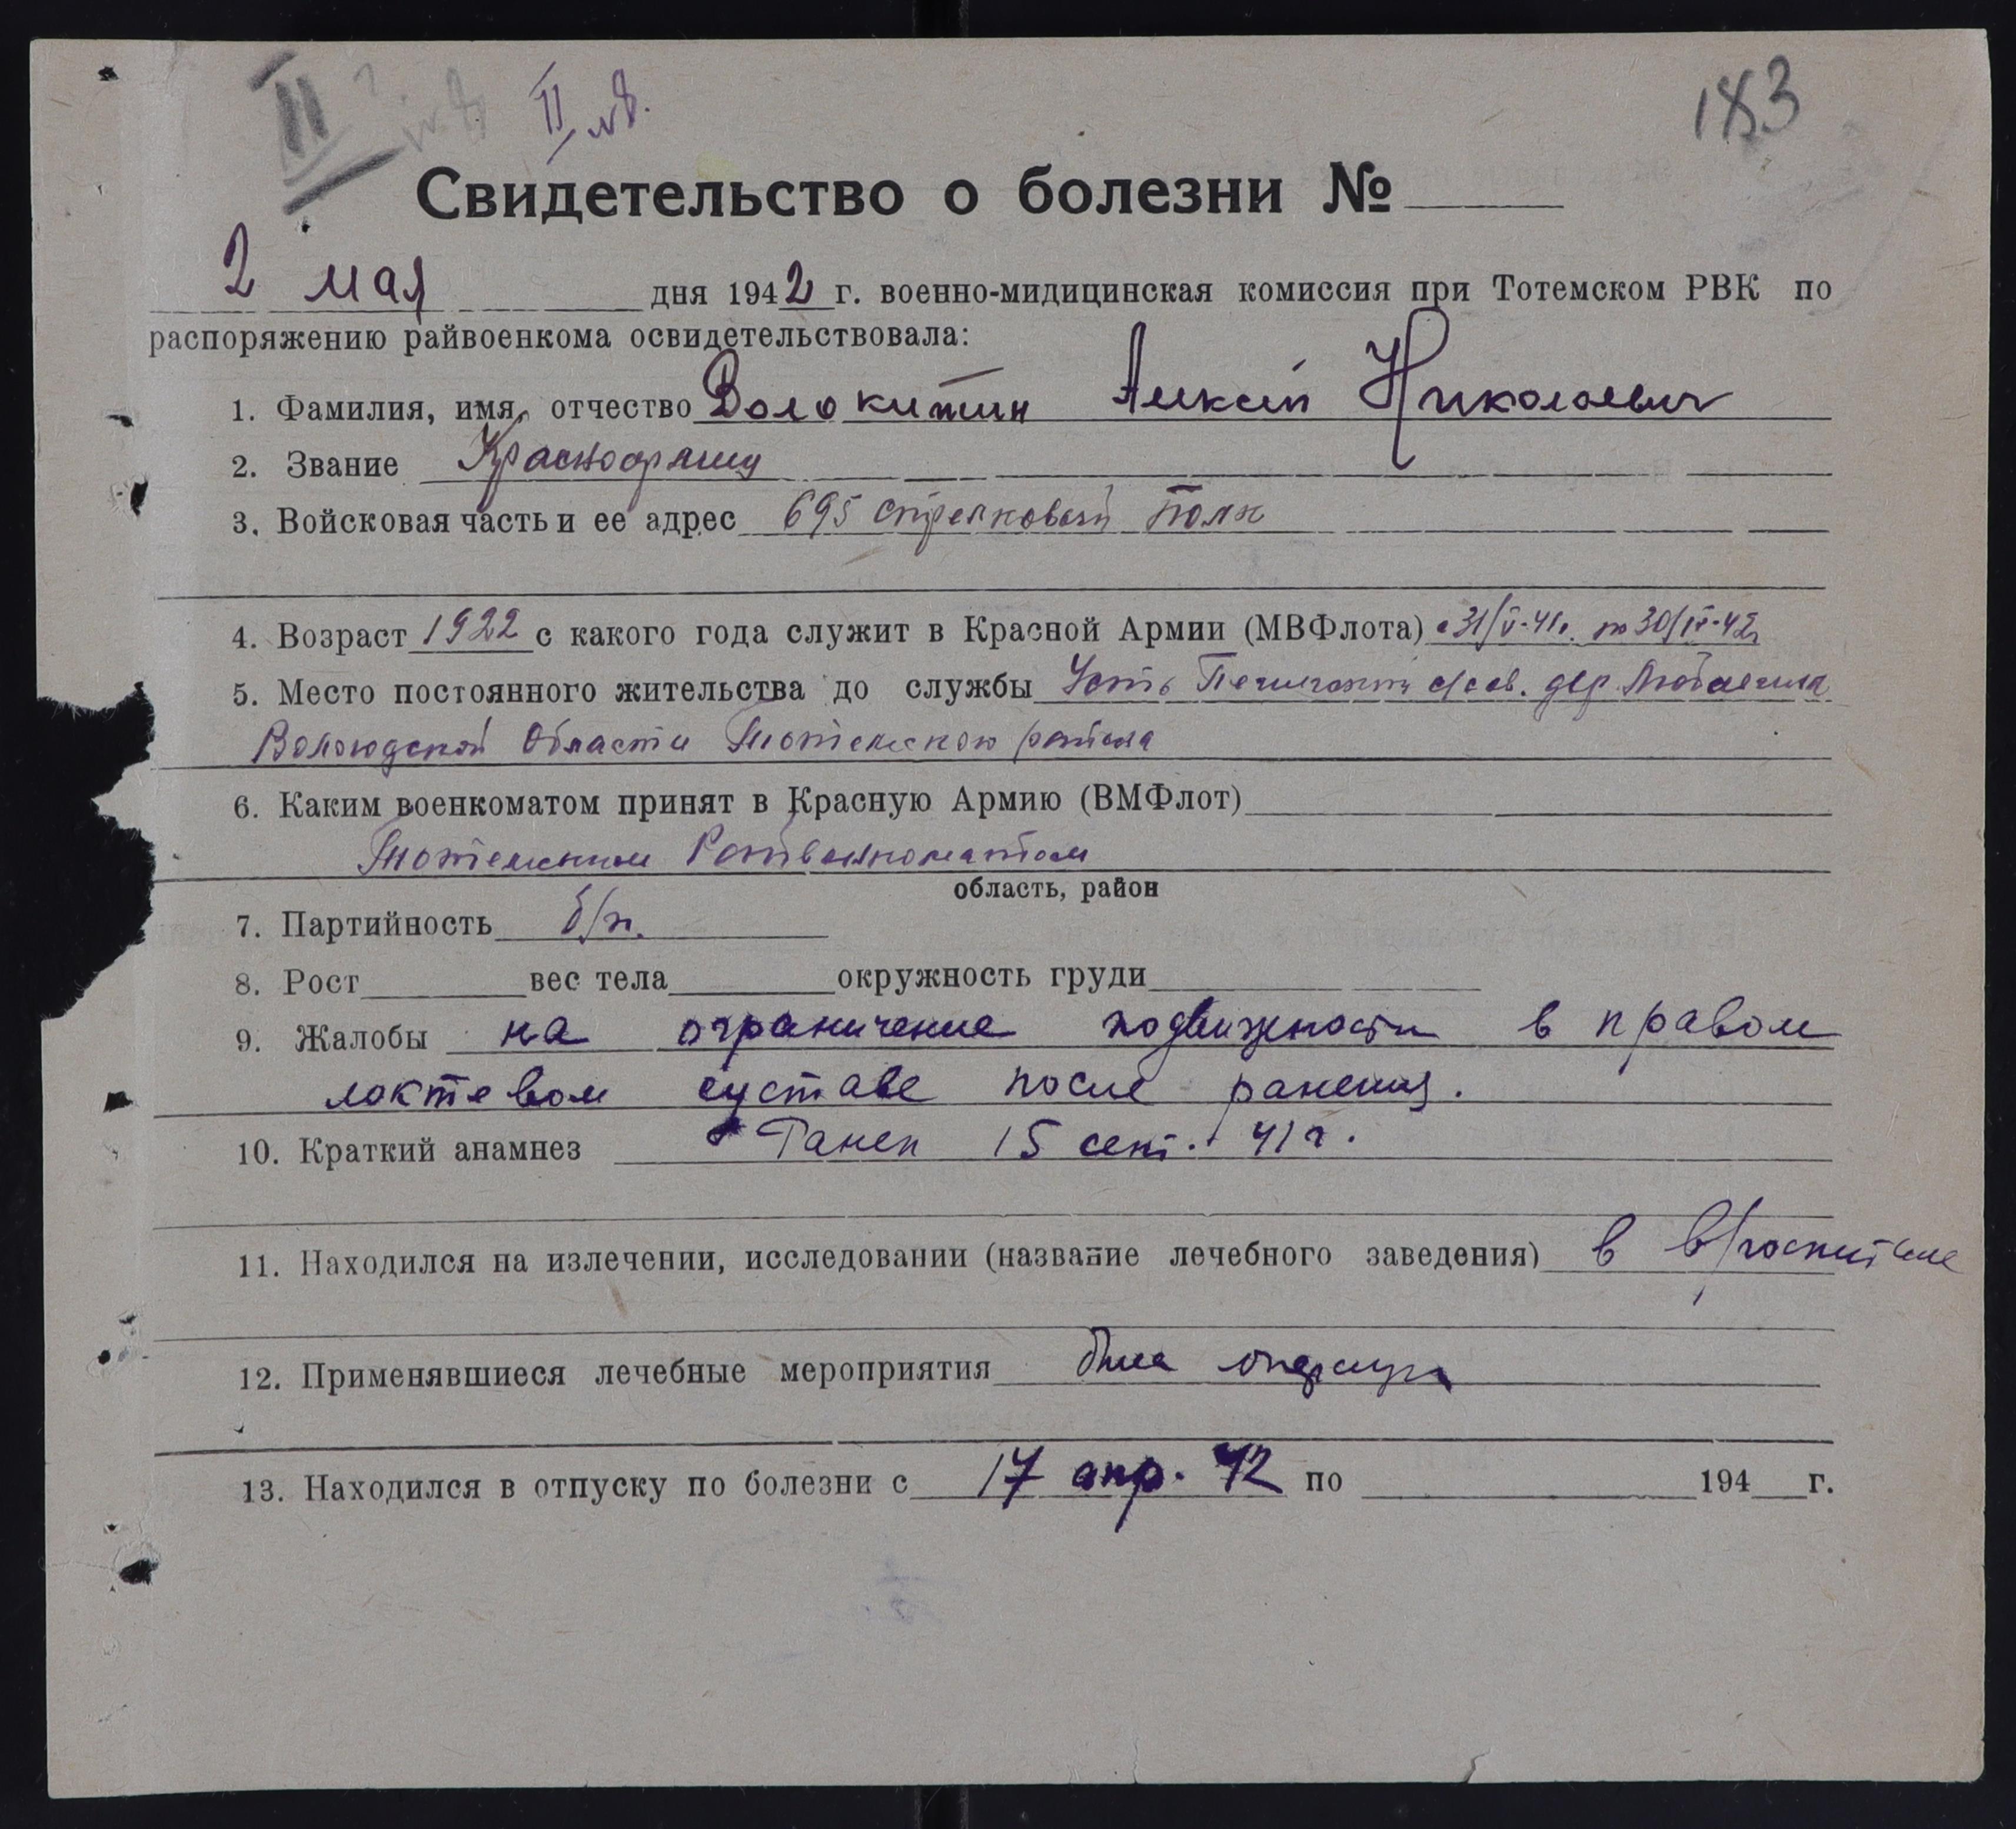 II
II
183
Свидетельство о болезни №
2 мая дня 1942 г. военно-мидицинская комиссия при Тотемском РВК по
распоряжению райвоенкома освидетельствовала:
1. Фамилия, имя, отчество Волокитин Алексей Николаевич
2. Звание Красноармеец
3. Войсковая часть и ее адрес 695 стрелковый полк
4. Возраст 1922 с какого года служит в Красной Армии (МВФлота) с 31/V-41г. по 30/IV-42г
5. Место постоянного жительства до службы Усть Печенгский с/сов. дер.
Вологодской области Тотемского района
6. Каким военкоматом принят в Красную Армию (ВМФлот)
Тотемским Райвоенкоматом
область, район
7. Партийность б/п.
8. Рост вес тела окружность груди
9. Жалобы на ограничение подвижности в правом
локтевом суставе после ранения.
10. Краткий анамнез Ранен 15 сент. 41 г.
11. Находился на излечении, исследовании (название лечебного заведения) в в/госпитале
12. Применявшиеся лечебные мероприятия была операция
13. Находился в отпуску по болезни с 17 апр. 42 по 194 г.